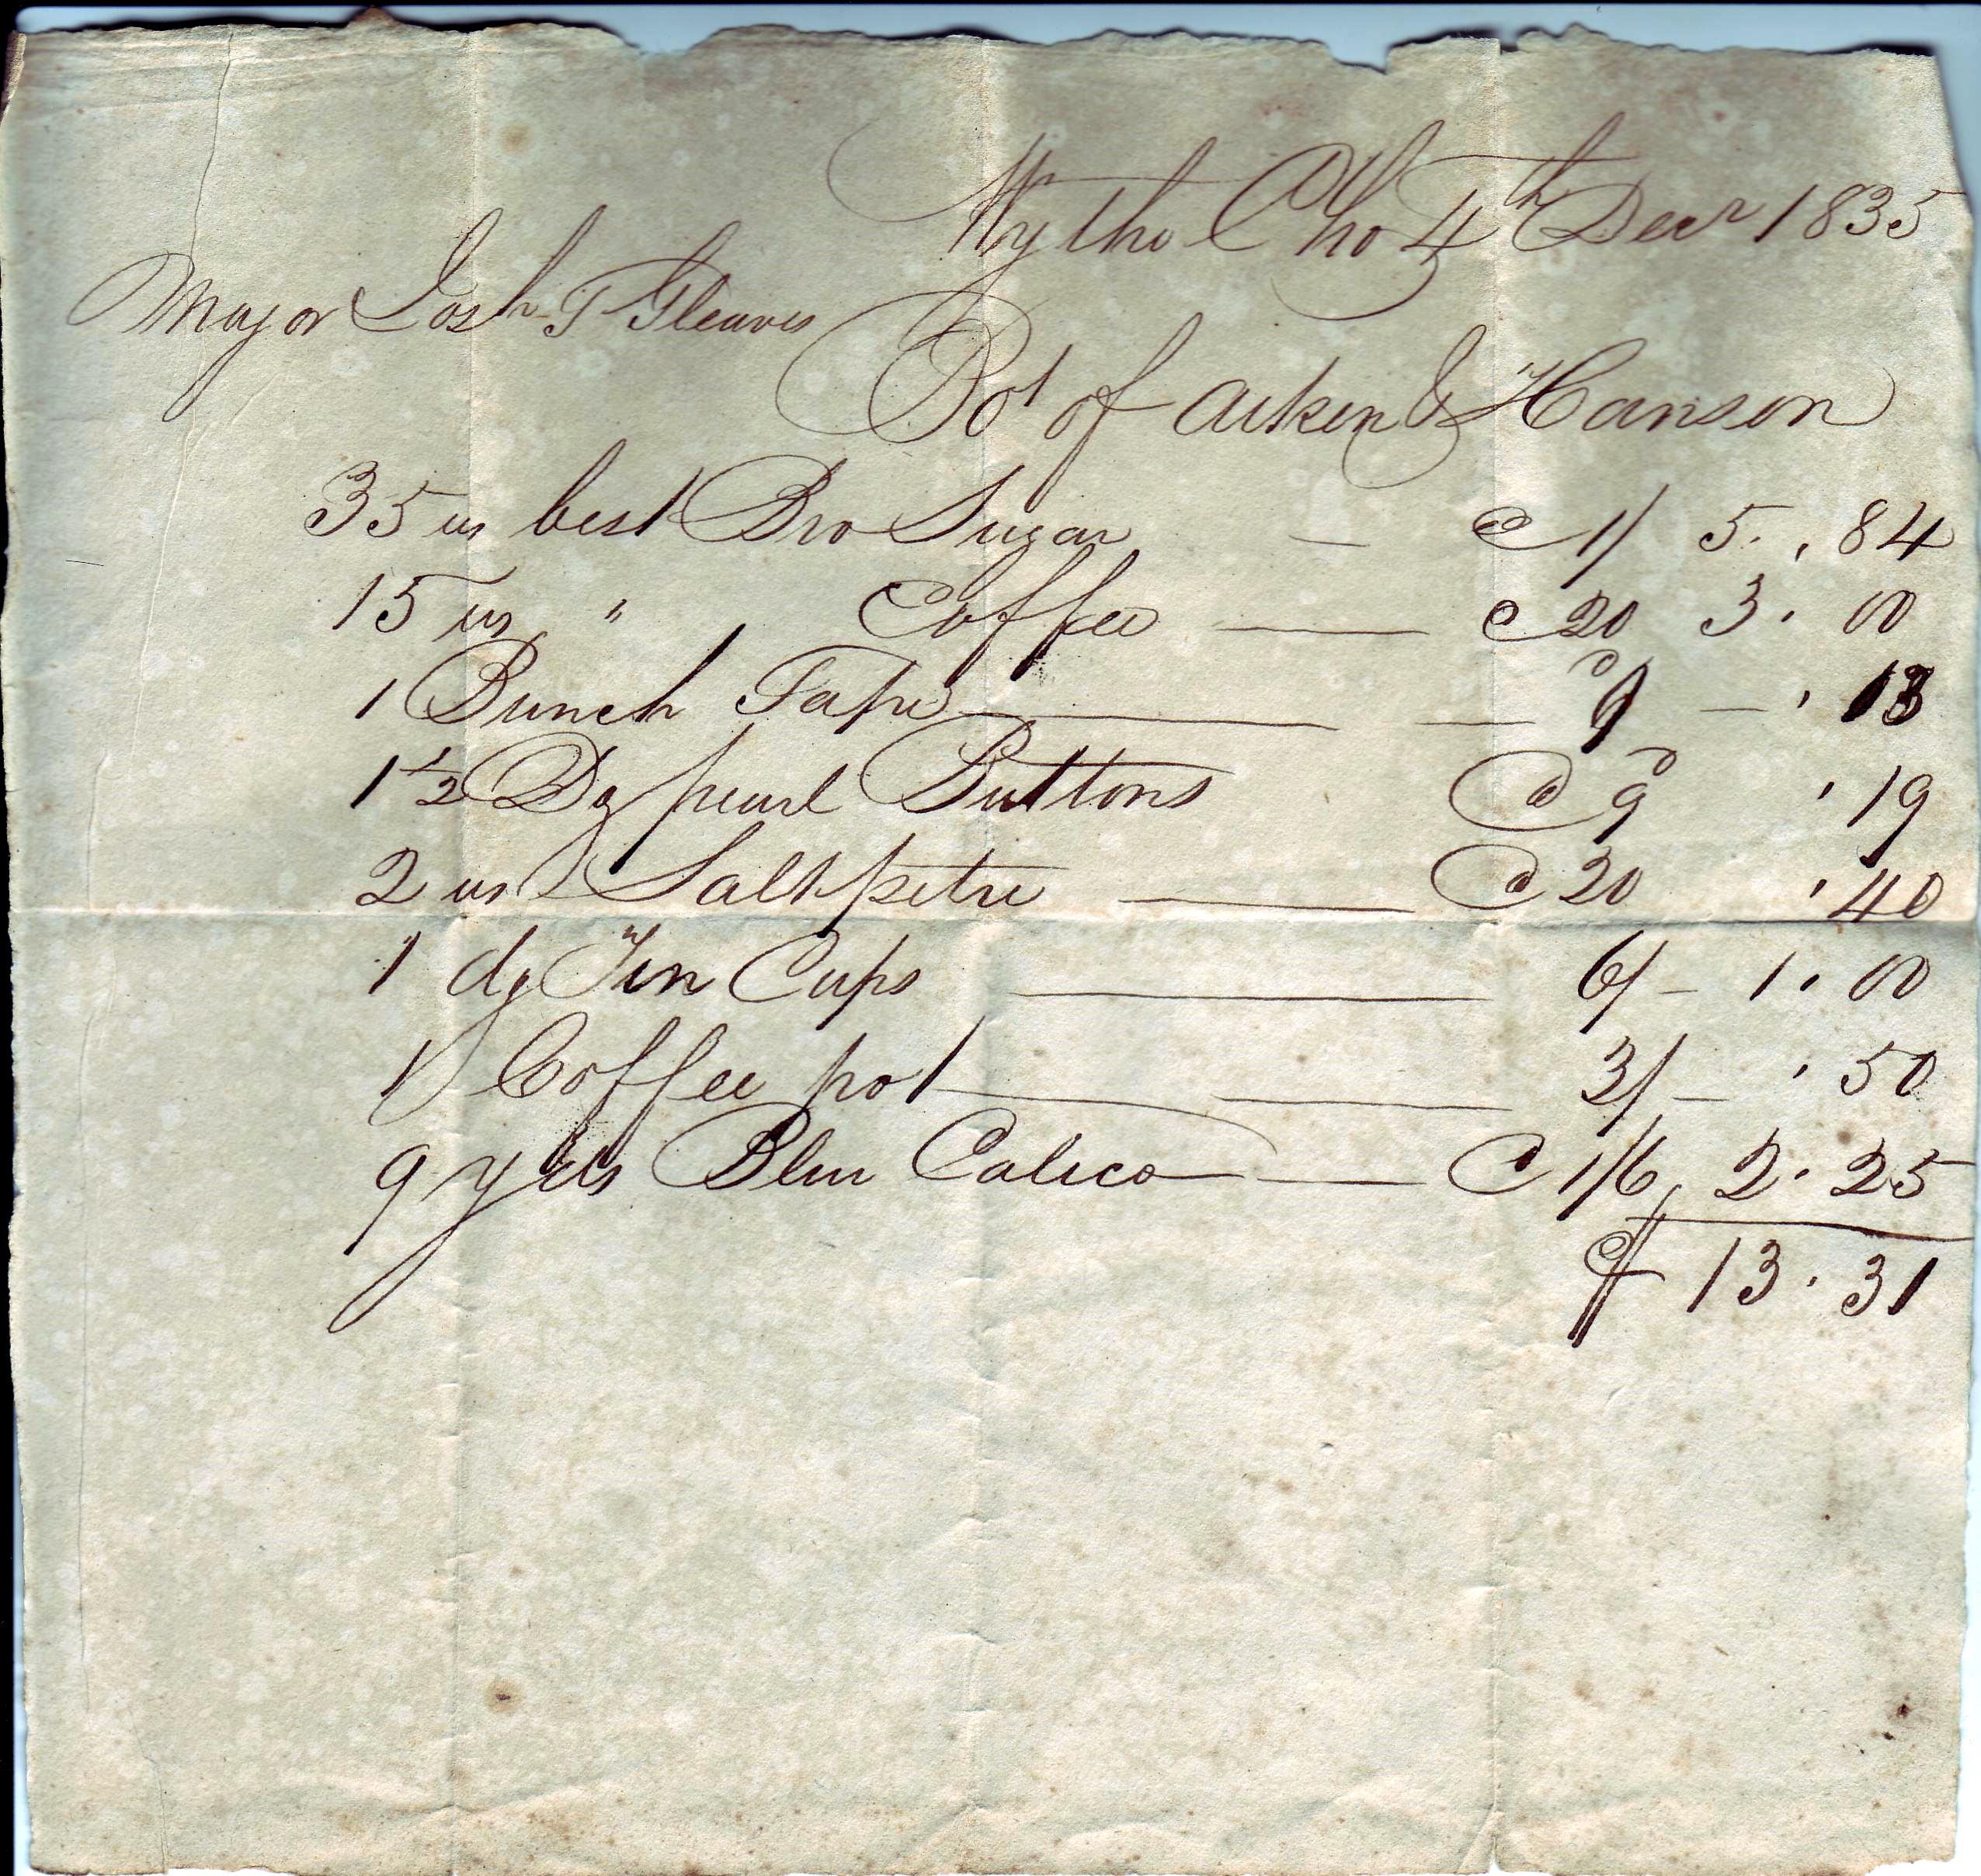 Wythe C Ho 4th Decr 1835
Major Josh T Gleaves
Bot of Aitken & Hanson
35 lbs best Bro Sugar — @ 1/ 5. , 84
15 lbs " Coffee — @ 20 3 . 00
1 Bunch Tape — — 9d — , 13
1 1/2 Dz pearl Buttons @ 9d , 19
2 lbs Saltpetre — @ 20 , 40
1 dz Tin Cups — 6/ – 1 . 00
1 Coffee pot — 3/ – , 50
9 yds Blue Calico — @ 1/6 2 . 25
$ 13 . 31